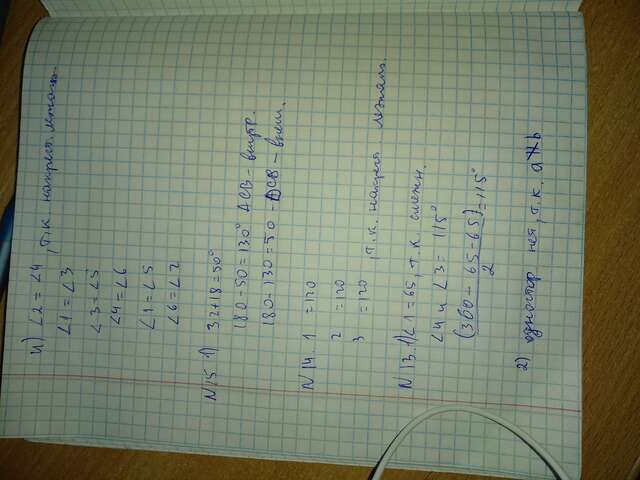 4) ∠2 = ∠4 , т.к накрест. лежащ.
∠1 = ∠3
∠3 = ∠5
∠4 = ∠6
∠1 = ∠5
∠6 = ∠2
N 15 1) 32+18=50°
180-50=130° ACB - внутр.
180-130=50 - DCB - внеш.
N 14. 1 =120
2 =120 , т.к. накрест лежащ.
3 =120
N 13. 1) ∠1 = 65, т.к смежн.
∠4 и ∠3 = 115°
(360 - 65 - 65) = 115°
2
2) одностор нет, т.к. a∦b